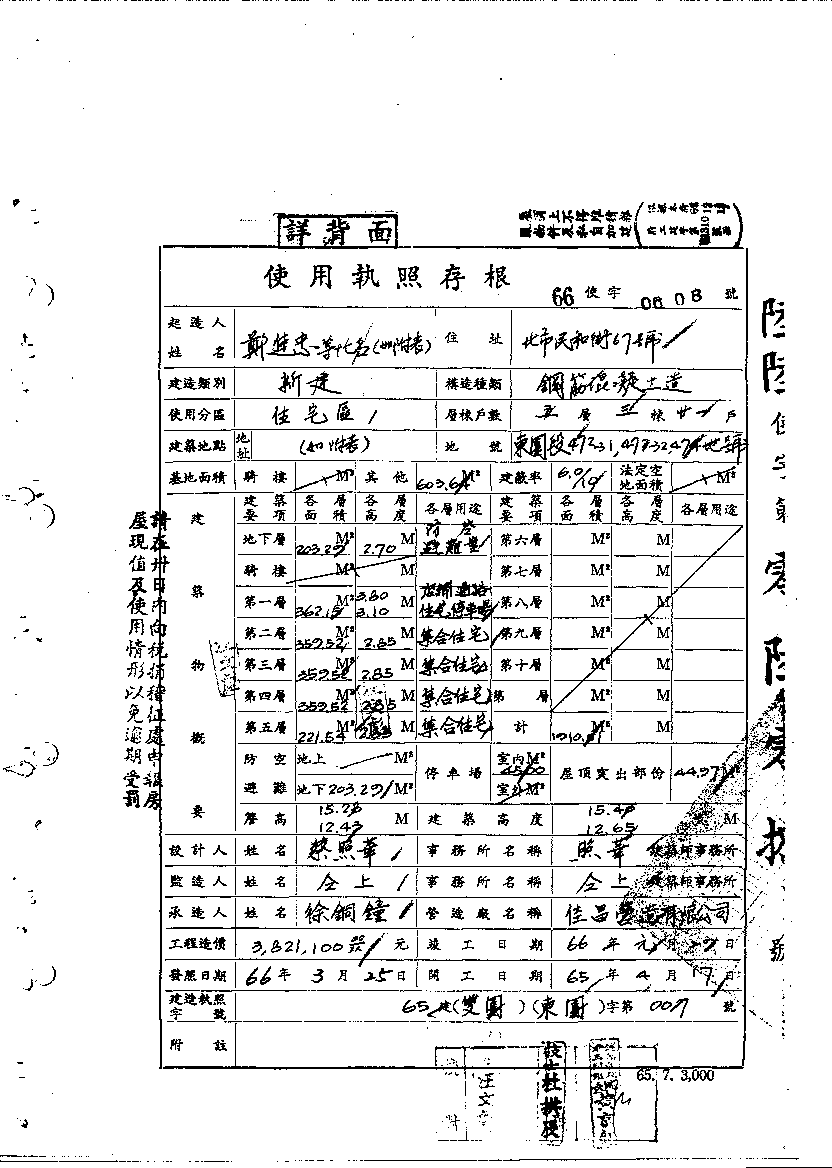 詳背面
使用執照存根
66 使字 0608 號
起造人姓名 鄭進忠等化名(如附表) 住址 北市民和街67號
建造類別 新建 構造種類 鋼筋混凝土造
使用分區 住宅區 層棟戶數 五層 三棟 廿一戶
建築地點 地址 (如附表) 地號
基地面積 騎樓 M² 其他 603.64 M² 建蔽率 6.0/10 法定空地面積 M²
建築概要物 建築要項 各層面積 各層高度 各層用途 建築要項 各層面積 各層高度 各層用途
地下層 203.29 M² 2.70 M 防空避難室 第六層 M² M
騎樓 M² M 第七層 M² M
第一層 362.15 M² 3.80 3.10 M 第八層 M² M
第二層 359.52 M² 2.85 M 集合住宅 第九層 M² M
第三層 359.52 M² 2.85 M 集合住宅 第十層 M² M
第四層 359.52 M² 2.85 M 集合住宅 第 層 M² M
第五層 221.54 M² M 集合住宅 計 M² M
防空避難 地上 M² 停車場 室內 M² 屋頂突出部份 44.97 M²
地下 203.29 M² 室外 M²
簷高 15.28 12.43 M 建築高度 15.48 12.65 M
設計人 姓名 蔡照華 事務所名稱 照華 建築師事務所
監造人 姓名 仝上 事務所名稱 仝上 建築師事務所
承造人 姓名 徐銅鐘 營造廠名稱 佳昌營造有限公司
工程造價 3,821,100 元 竣工日期 66年元月 日
發照日期 66年3月25日 開工日期 65年4月17日
建造執照字號 65建(雙園)(東園)字第007號
附註
65.7.3,000
請在卅日內向稅捐稽征處申報房
屋現值及使用情形以免逾期受罰